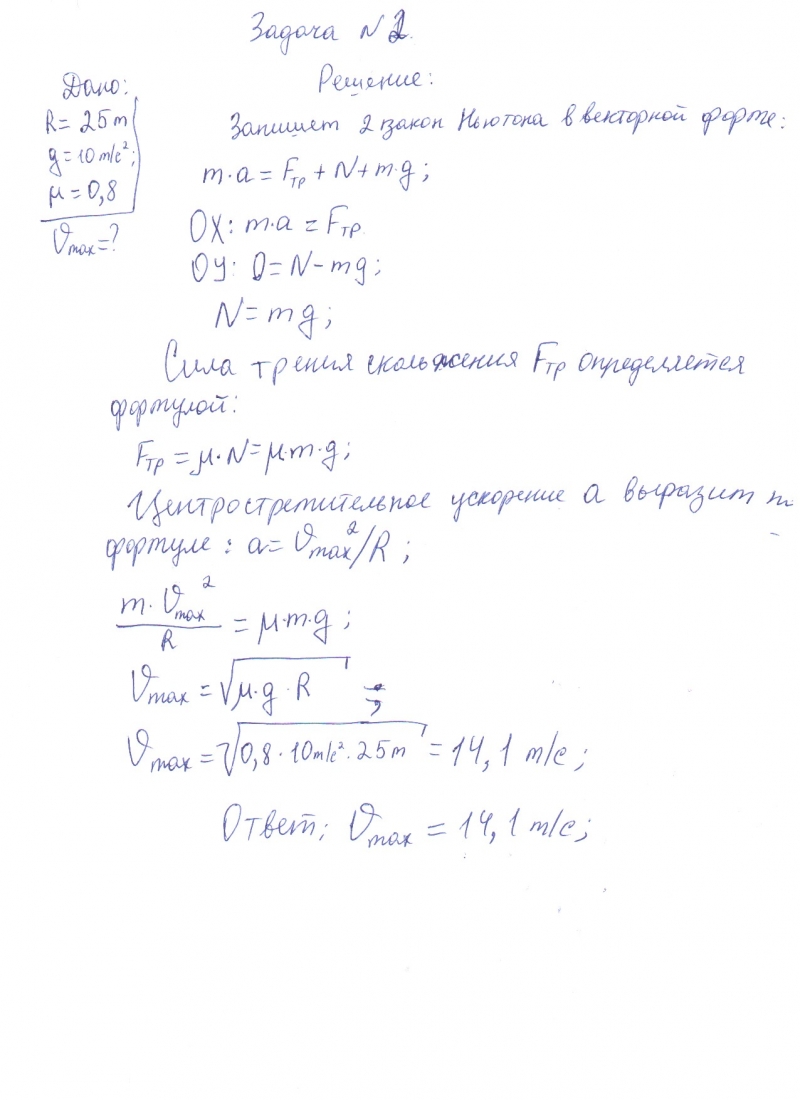 Задача N 2.
Дано:
R = 25 m
g = 10 m/c²;
μ = 0,8
υmax = ?
Решение:
Запишем 2 закон Ньютона в векторной форме:
m·a = Fтр + N + m·g;
OX: m·a = Fтр
OY: 0 = N - mg;
N = mg;
Сила трения скольжения Fтр определяется
формулой:
Fтр = μ·N = μ·m·g;
Центростремительное ускорение a выразим
формуле: a = υmax²/R;
m·υmax²/R = μ·m·g;
υmax = √μ·g·R ;
υmax = √0,8·10m/c²·25m = 14,1 m/c;
Ответ; υmax = 14,1 m/c;